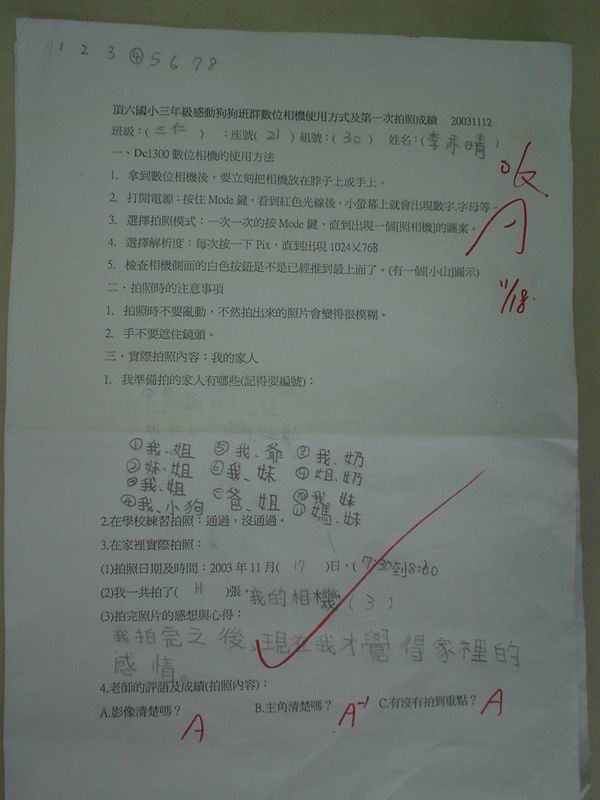 1 2 3 ④ 5 6 7 8
頂六國小三年級感動狗狗班群數位相機使用方式及第一次拍照成績 20031112
班級:(三仁) :座號(21)組號:(30) 姓名:(李亦晴)
一、Dc1300數位相機的使用方法
1. 拿到數位相機後,要立刻把相機放在脖子上或手上。
2. 打開電源:按住Mode鍵,看到紅色光線後,小螢幕上就會出現數字.字母等。
3. 選擇拍照模式:一次一次的按Mode鍵,直到出現一個[照相機]的圖案。
4. 選擇解析度:每次按一下Pix,直到出現1024X768
5. 檢查相機側面的白色按鈕是不是已經推到最上面了。(有一個[小山]圖示)
11/18.
二、拍照時的注意事項
1. 拍照時不要亂動,不然拍出來的照片會變得很模糊。
2. 手不要遮住鏡頭。
三、實際拍照內容:我的家人
1. 我準備拍的家人有哪些(記得要編號):
①我、姐 ⑤我、爺 ⑧我、奶
②妹、姐 ⑥我、妹 ⑨姐、奶
③我、姐 ⑦爸、姐 ⑩我、妹
④我、小狗 ⑪媽、妹
2.在學校練習拍照:通過,沒通過。
3.在家裡實際拍照:
(1)拍照日期及時間:2003年11月(17)日,(7:30到8:00
(2)我一共拍了(11)張。我的相機(3)
(3)拍完照片的感想與心得:
我拍完之後,現在我才覺得家裡的
感情。
4.老師的評語及成績(拍照內容):
A.影像清楚嗎? B.主角清楚嗎? C.有沒有拍到重點?
A A⁻¹ A